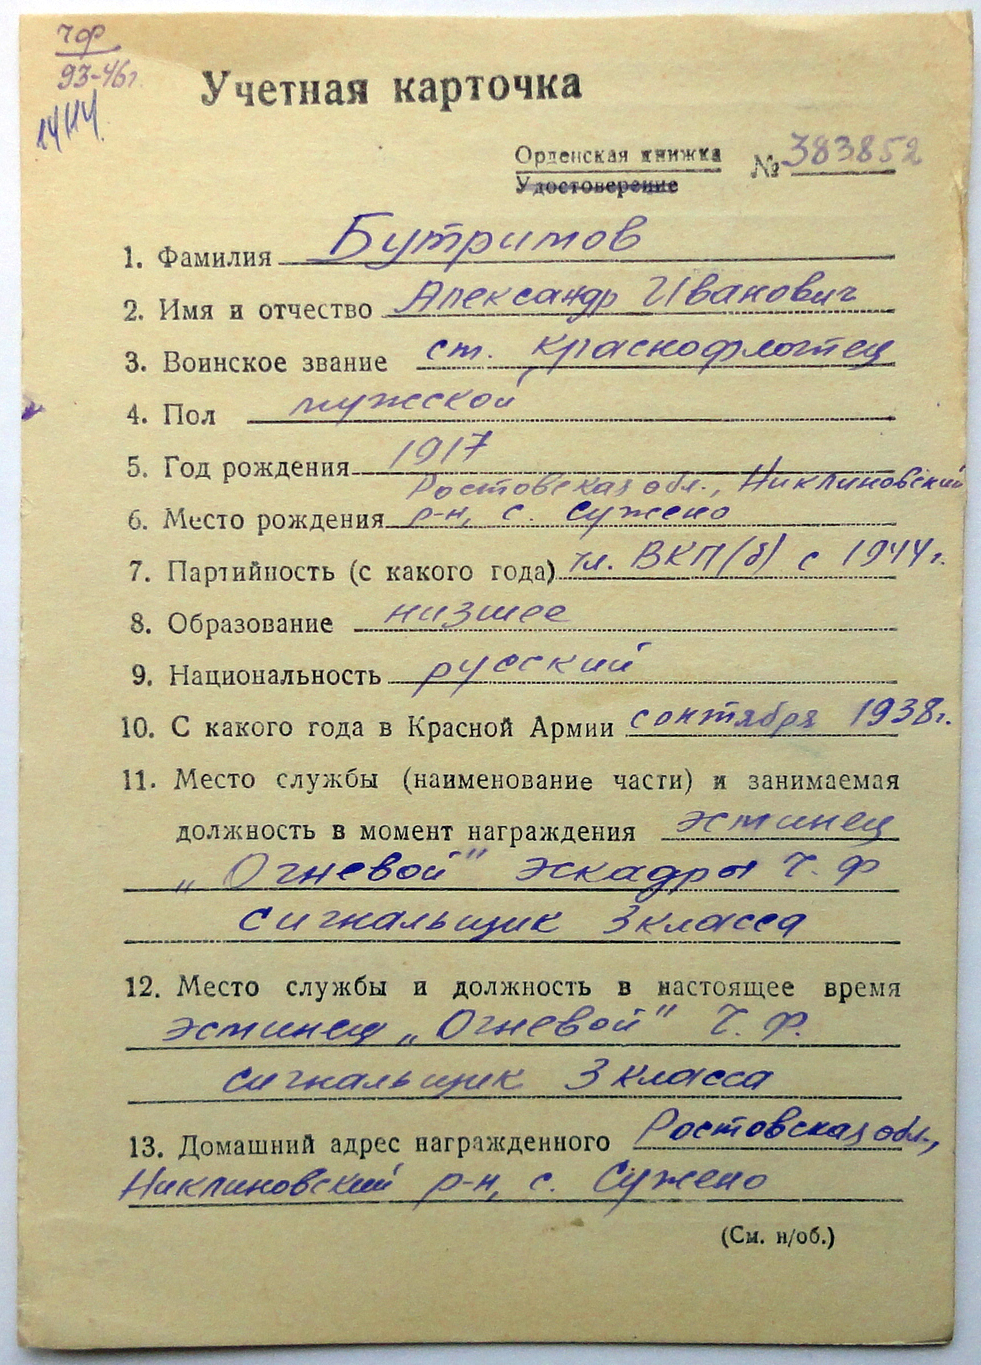 ЧФ
93-46г.
Учетная карточка
Орденская книжка
Удостоверение
№ 383852
1. Фамилия Бутримов
2. Имя и отчество Александр Иванович
3. Воинское звание ст. краснофлотец
4. Пол мужской
5. Год рождения 1917
Ростовская обл., Никлиновский
6. Место рождения р-н, с. Сужено
7. Партийность (с какого года) чл. ВКП(б) с 1944 г.
8. Образование низшее
9. Национальность русский
10. С какого года в Красной Армии сентября 1938 г.
11. Место службы (наименование части) и занимаемая
должность в момент награждения эсминец
„Огневой" эскадры Ч.Ф
сигнальщик 3 класса
12. Место службы и должность в настоящее время
эсминец „Огневой" Ч.Ф.
сигнальщик 3 класса
13. Домашний адрес награжденного Ростовская обл.,
Никлиновский р-н, с. Сужено
(См. н/об.)